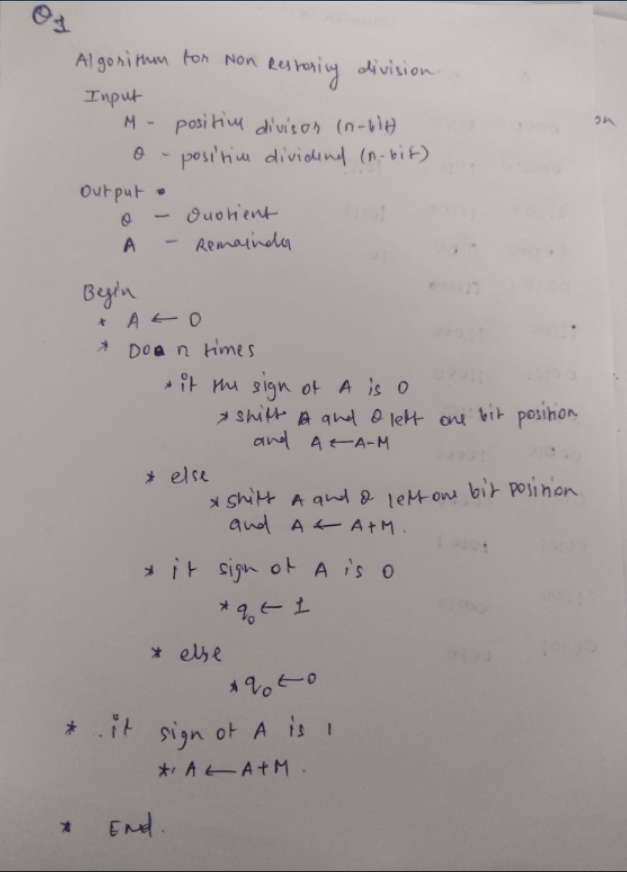 Q1
Algorithm for Non Restoring division
Input
M - positive divisor (n-bit)
Q - positive dividend (n-bit)
Output
Q - Quotient
A - Remainder
Begin
* A ← 0
* Do n times
* if the sign of A is 0
* shift A and Q left one bit position
and A ← A-M
* else
* shift A and Q left one bit position
and A ← A+M.
* if sign of A is 0
* q0 ← 1
* else
* q0 ← 0
* if sign of A is 1
* A ← A+M.
* End.